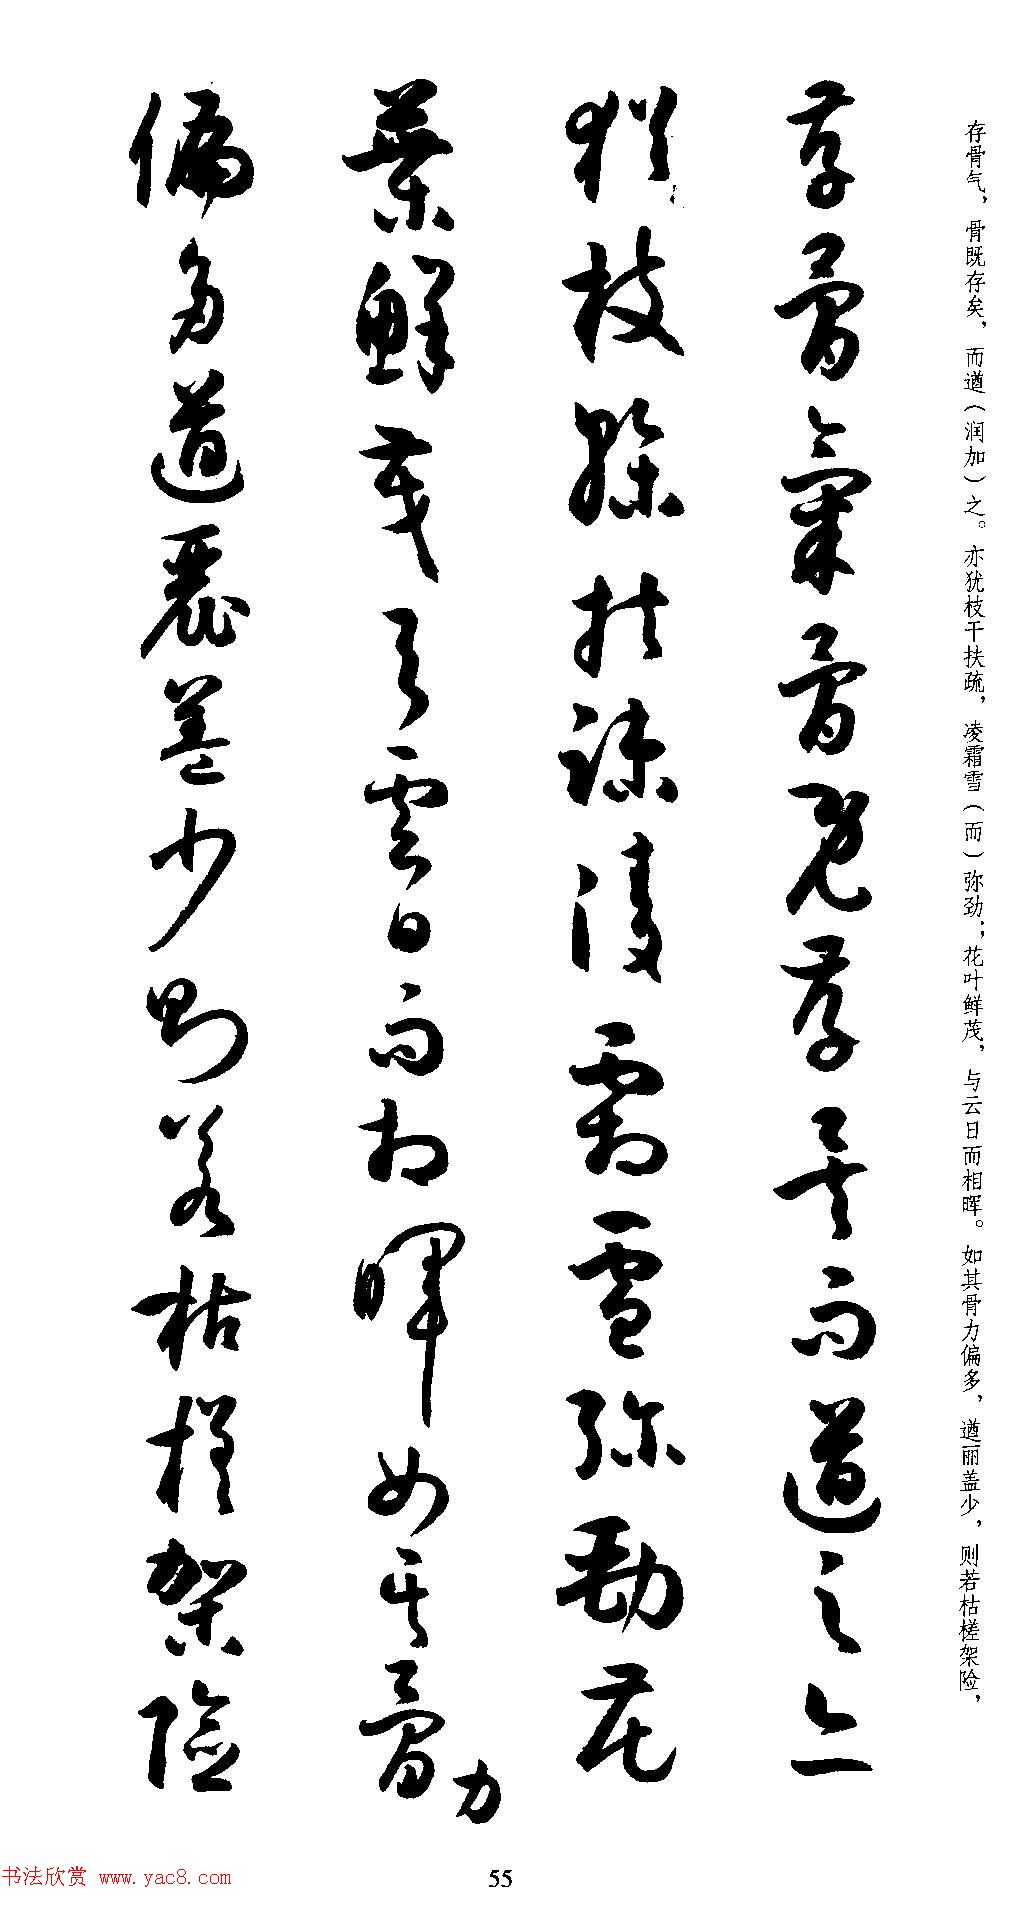 存骨气，骨既存矣，而遒（润加）之。亦犹枝干扶疏，凌霜雪（而）弥劲；花叶鲜茂，与云日而相晖。如其骨力偏多，遒丽盖少，则若枯槎架险，
存骨氣骨既存矣而遒之亦
猶枝幹扶疎凌霜雪弥勁花
葉鮮茂与雲日而相暉如其骨力
偏多遒麗蓋少則若枯槎架險
书法欣赏 www.yac8.com
55